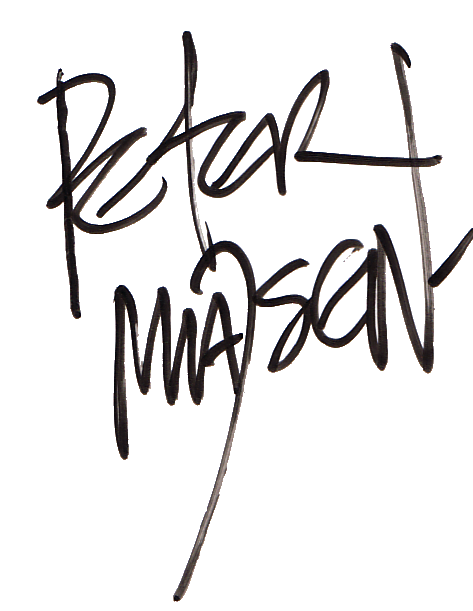 Peter
Madsen